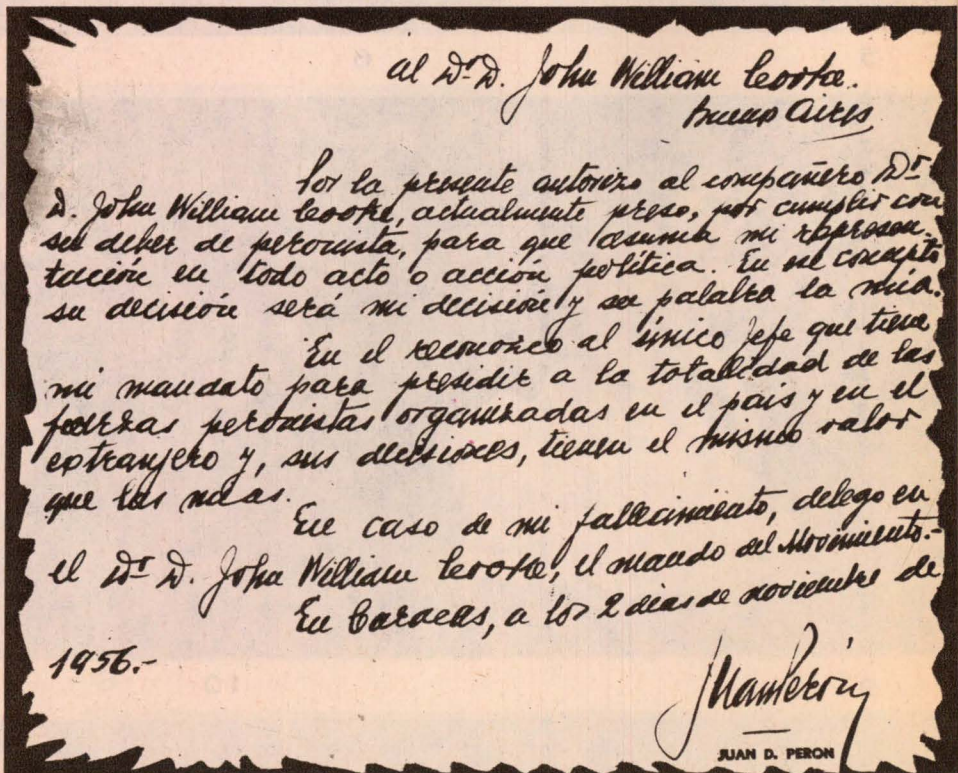 al Dr. D. John William Cooke.
Buenos Aires
Por la presente autorizo al compañero Dr.
D. John William Cooke, actualmente preso, por cumplir con
su deber de peronista, para que asuma mi represen-
tación en todo acto o acción política. En ese concepto
su decisión será mi decisión y su palabra la mía.
En él reconozco al único jefe que tiene
mi mandato para presidir a la totalidad de las
fuerzas peronistas organizadas en el país y en el
extranjero y, sus decisiones, tienen el mismo valor
que las mías.
En caso de mi fallecimiento, delego en
el Dr. D. John William Cooke, el mando del Movimiento.-
En Caracas, a los 2 días de noviembre de
1956.-
Juan Perón
JUAN D. PERON